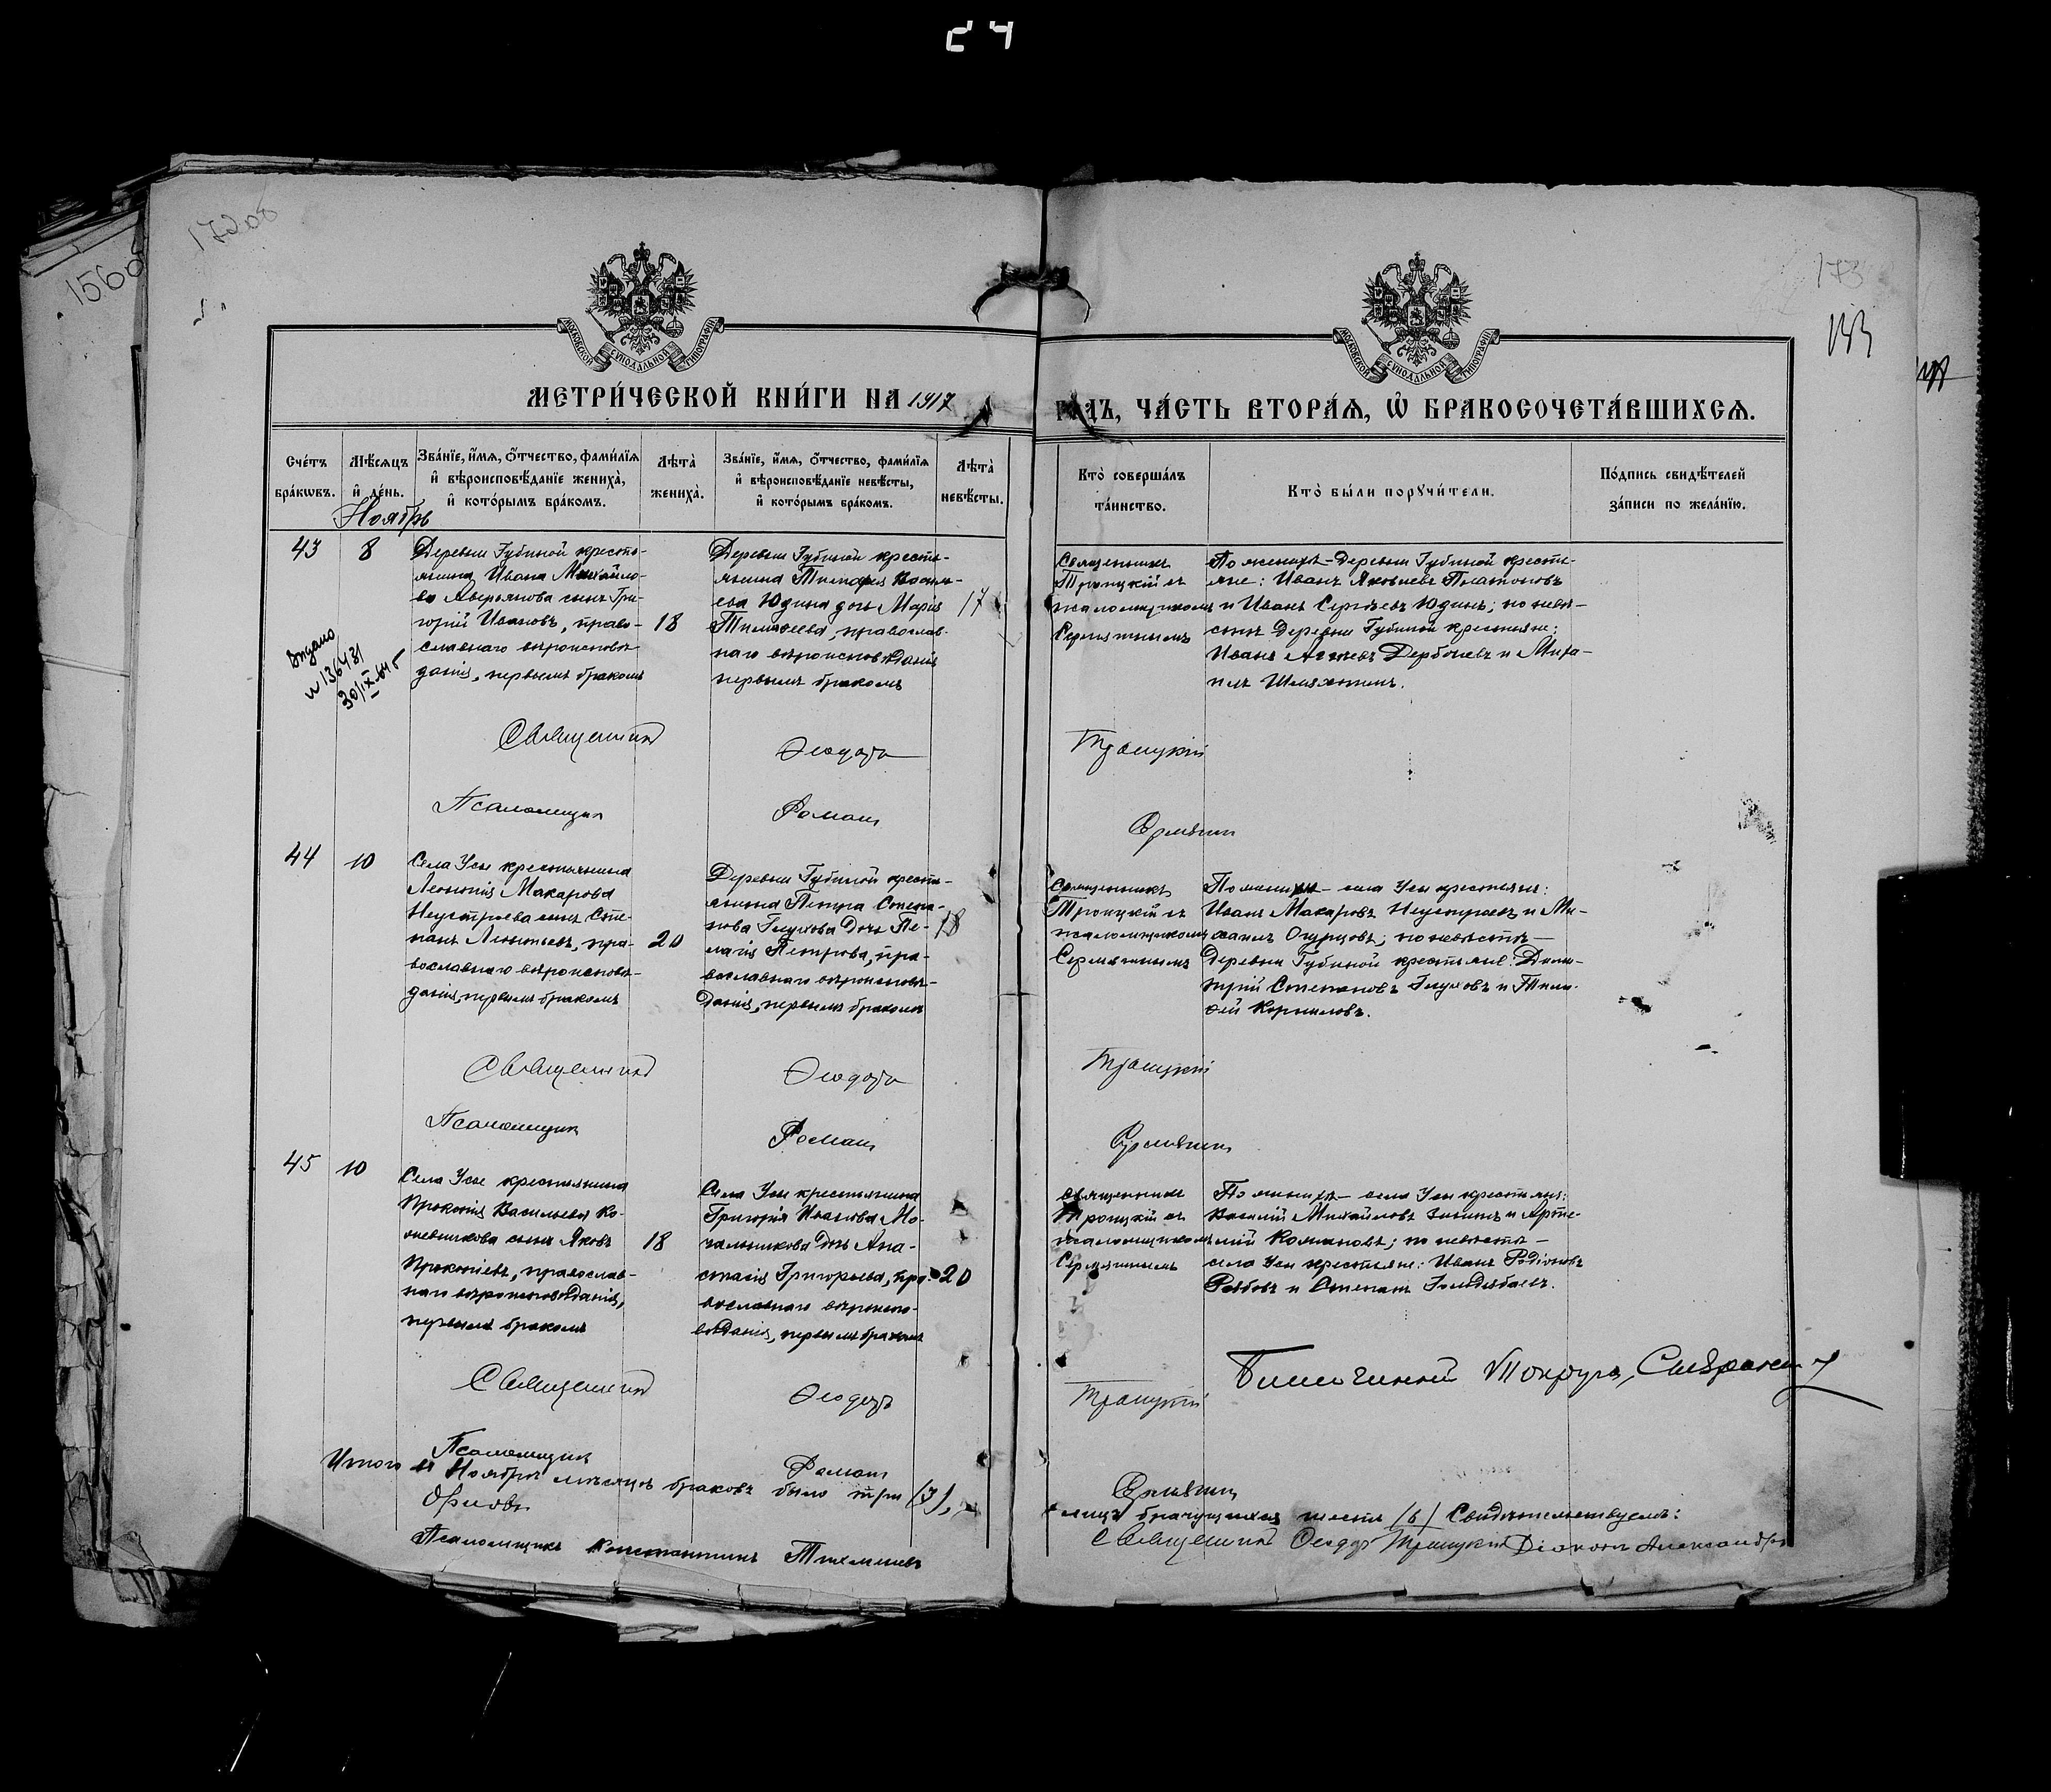 24
17208
1560
173
133
МОСКОВСКОЙ СУНОДАЛЬНОЙ ТИПОГРАФІИ
МОСКОВСКОЙ СУНОДАЛЬНОЙ ТИПОГРАФІИ
МЕТРИ́ЧЕСКОЙ КНИ́ГИ НА 1917
ГОДЪ, ЧА́СТЬ ВТОРА́Ѧ, Ѡ҆ БРАКОСОЧЕТА́ВШИХСѦ.
Сче́тъ бра́кѡвъ.
Мѣ́сѧцъ и҆ де́нь.
Зва́нїе, и҆́мѧ, ѻ҆́тчество, фами́лїѧ
и҆ вѣроисповѣ́данїе жениха̀,
и҆ кото́рымъ бра́комъ.
Лѣ́та̀ жениха̀.
Зва́нїе, и҆́мѧ, ѻ҆́тчество, фами́лїѧ
и҆ вѣроисповѣ́данїе невѣ́сты,
и҆ кото́рымъ бра́комъ.
Лѣ́та̀ невѣ́сты.
Кто̀ соверша́лъ
та́инство.
Кто̀ бы́ли порꙋчи́тели.
По́дпись свидѣ́телей
за́писи по жела́нїю.
Ноябрь
43
8
Деревни Губиной кресть-
янина Ивана Михайло-
ва Аверьянова сынъ Гри-
горій Ивановъ, право-
славнаго вѣроисповѣ-
данія, первымъ бракомъ
18
Деревни Губиной кресть-
янина Тимофея Василь-
ева Юдина дочь Марія
Тимофеева, православ-
наго вѣроисповѣданія
первымъ бракомъ
17
Священникъ
Троицкій съ
псаломщикомъ
По женихѣ – Деревни Губиной кресть-
яне: Иванъ Яковлевъ Платоновъ
и Иванъ Сергѣевъ Юдинъ; по невѣ-
стѣ Деревни Губиной крестьяне:
Иванъ Дербеневъ и Миха-
илъ
Выдано
N 136431
30/IX
Священникъ Ѳеодоръ Троицкій
Псаломщикъ Романъ
44
10
Села Усы крестьянина
Леонтія Макарова
Неустроева сынъ Сте-
панъ Леонтьевъ, пра-
вославнаго вѣроисповѣ-
данія, первымъ бракомъ
20
Деревни Губиной кресть-
янина Петра Степа-
нова Глухова Дочь Пе-
лагія Петрова, пра-
вославнаго вѣроисповѣ-
данія, первымъ бракомъ
18
Священникъ
Троицкій съ
псаломщикомъ
По женихѣ – села Усы крестьяне:
Иванъ Макаровъ Неустроевъ и Ми-
хаилъ Огурцовъ; по невѣстѣ –
Деревни Губиной крестьяне: Дими-
трій Степановъ Глуховъ и Тимо-
фей Корниловъ.
Священникъ Ѳеодоръ Троицкій
Псаломщикъ Романъ
45
10
Села Усы крестьянина
Прокопія Васильева Ко-
сынъ Яковъ
Прокопіевъ, православ-
наго вѣроисповѣданія,
первымъ бракомъ
18
Села Усы крестьянина
Григорія Иванова Мо-
чальникова дочь Ана-
стасія Григорьева, пра-
вославнаго вѣроиспо-
вѣданія, первымъ бракомъ
20
Священникъ
Троицкій съ
псаломщикомъ
По женихѣ – села Усы крестьяне:
Василій Михайловъ Зининъ и Арте-
мій Кочановъ; по невѣстѣ –
села Усы крестьяне: Иванъ Родіоновъ
Рябовъ и Степанъ
Священникъ Ѳеодоръ Троицкій
Благочинный
Псаломщикъ Романъ
Итого въ Ноябрѣ мѣсяцѣ браковъ было три (3),
лицъ брачущихся шесть (6) Свидѣтельствуемъ:
Священникъ Ѳеодоръ Троицкій Діаконъ Александръ
Орловъ
Псаломщикъ Константинъ